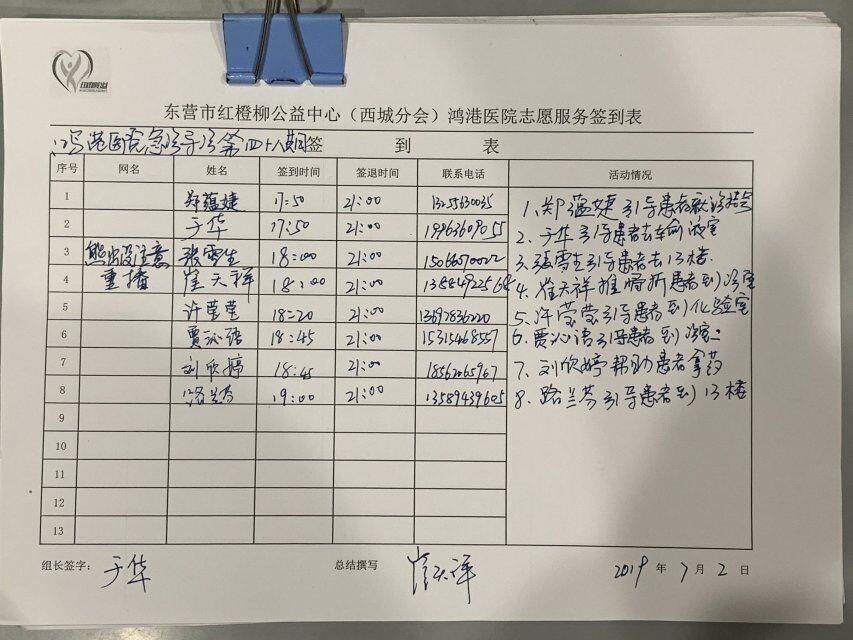 东营市红橙柳公益中心（西城分会）鸿港医院志愿服务签到表
鸿港医院急诊导诊第四十八期签 到 表
序号 网名 姓名 签到时间 签退时间 联系电话 活动情况
1 郑蕴婕 17:50 21:00
2 于华 17:50 21:00 19963609055
3 熊出没注意 张雪生 18:00 21:00
4 重播 崔天祥 18:00 21:00
5 许莹莹 18:20 21:00
6 贾沁语 18:45 21:00 15315468557
7 刘欣婷 18:45 21:00 18562065967
8 路兰芬 19:00 21:00 13589439605
9
10
11
12
13
1、郑蕴婕引导患者
2、于华引导患者去输液室
3、张雪生引导患者去13楼.
4、崔天祥推骨折患者到诊室
5、许莹莹引导患者到化验室
6、贾沁语引导患者到诊室
7、刘欣婷帮助患者拿药
8、路兰芬引导患者到13楼
组长签字： 于华 总结撰写 崔天祥 2019 年 7 月 2 日